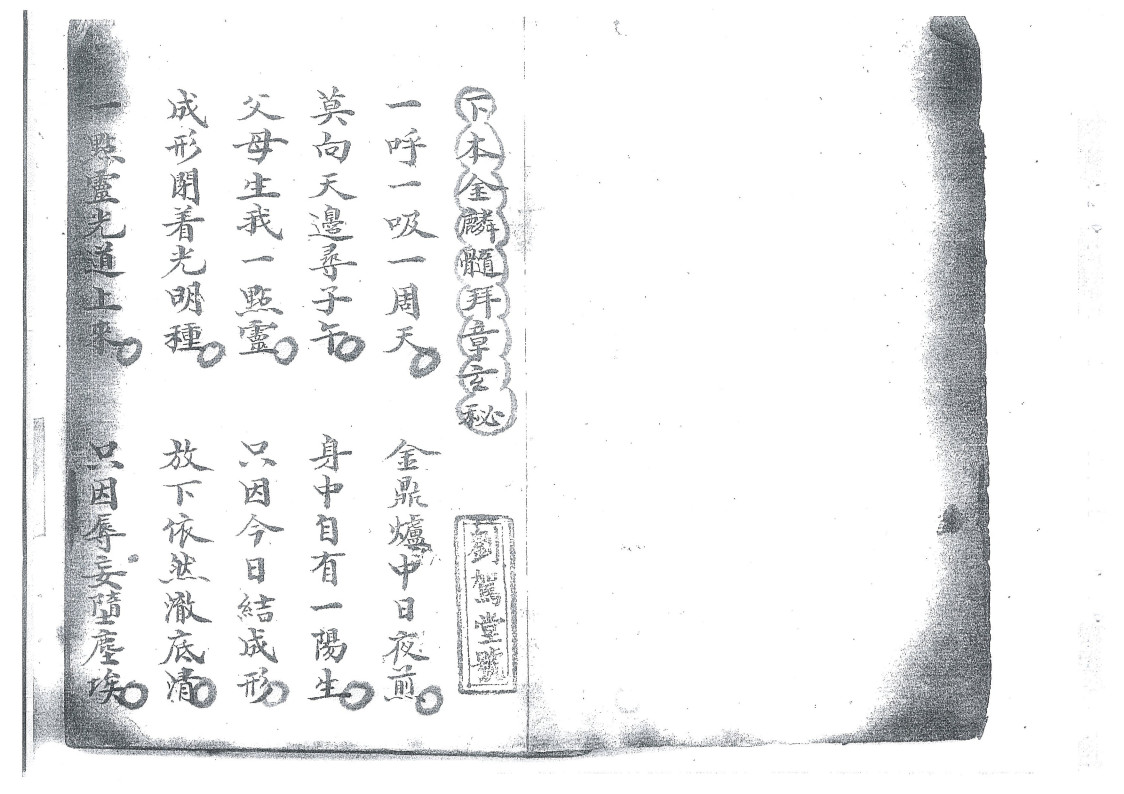 下本金麟髓拜章玄秘
劉駕堂號
一呼一吸一周天 金鼎爐中日夜煎
莫向天邊尋子午 身中自有一陽生
父母生我一點靈 只因今日結成形
成形閉着光明種 放下依然澈底清
一點靈光道上來 只因辱妄墮塵埃